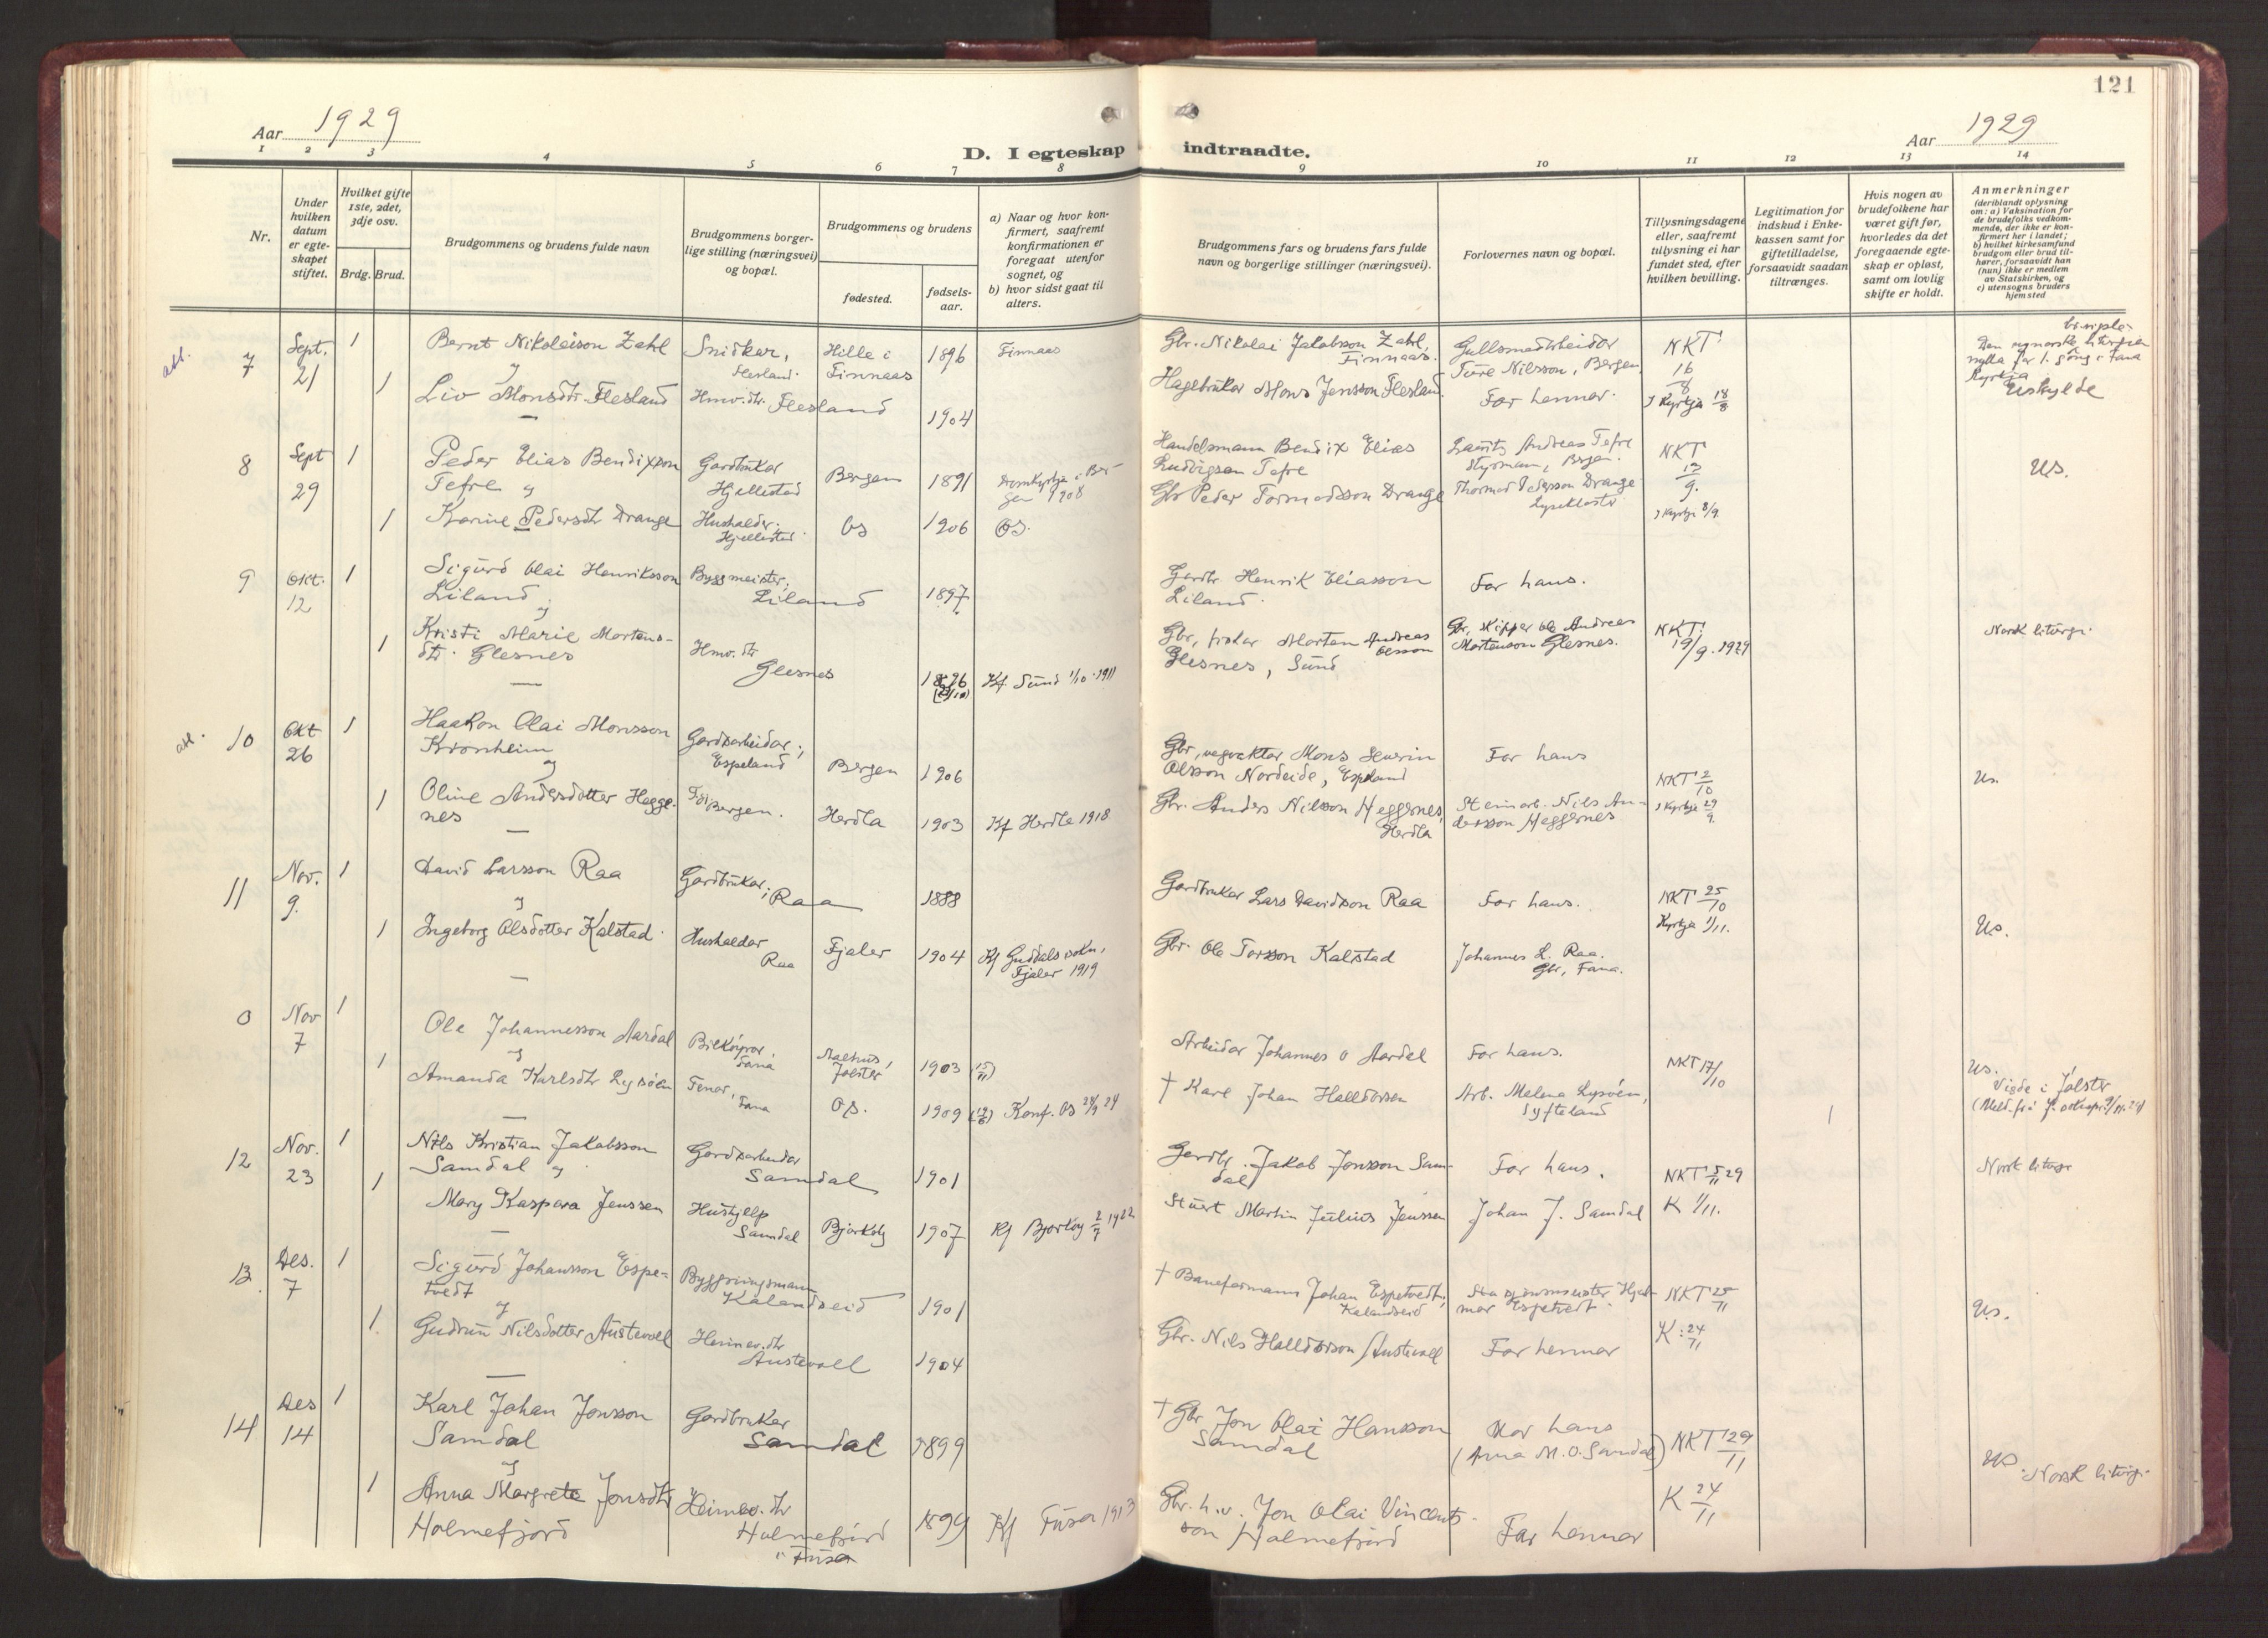 121
Aar 1929
Aar 1929
D. I egteskap indtraadte.
1 2 3 4 5 6 7 8 9 10 11 12 13 14
Nr.
Under hvilken datum er egteskapet stiftet.
Hvilket gifte 1ste, 2det, 3dje osv.
Brdg. Brud.
Brudgommens og brudens fulde navn
Brudgommens borgerlige stilling (næringsvei) og bopæl.
Brudgommens og brudens
fødested.
fødsels-aar.
a) Naar og hvor konfirmert, saafremt konfirmationen er foregaat utenfor sognet, og
b) hvor sidst gaat til alters.
Brudgommens fars og brudens fars fulde navn og borgerlige stillinger (næringsvei).
Forlovernes navn og bopæl.
Tillysningsdagene eller, saafremt tillysning ei har fundet sted, efter hvilken bevilling.
Legitimation for indskud i Enkekassen samt for giftetilladelse, forsaavidt saadan tiltrænges.
Hvis nogen av brudefolkene har været gift før, hvorledes da det foregaaende egteskap er opløst, samt om lovlig skifte er holdt.
Anmerkninger
(deriblandt oplysning om: a) Vaksination for de brudefolks vedkommende, der ikke er konfirmert her i landet; b) hvilket kirkesamfund brudgom eller brud tilhører, forsaavidt han (hun) ikke er medlem av Statskirken, og c) utensogns bruders hjemsted
7 Sept. 21 1 Bernt Nikolaison Zahl Snidkar, Flesland. Hille i Finnaas 1896 Finnaas Gbr. Nikolai Jakobsson Zahl, Finnaas. Gullsmedarbeidar Ture Nilsson, Bergen NKT 16/8
og
1 Liv Monsdtr. Flesland Hmv.dtr. Flesland 1904 Hagebrukar Mons Jensson Flesland. Far hennar. I Kyrkja 18/8 Uskylde
8 Sept 29 1 Peder Elias Bendixson Tefre og Gardbrukar Hjellestad Bergen 1891 Domkyrkja i Bergen 1908 Handelsmann Bendix Elias Ludvigsen Tefre Lauritz Andreas Tefre Styrmann, Bergen. NKT 13/9. Us.
1 Karine Pedersdtr Drange Hushalder, Hjellestad Os 1906 Os. Gbr Peder Tormodsson Drange Thormod Pedersson Drange Lysekloster I Kyrkja 8/9.
9 Okt. 12 1 Sigurd Olai Henriksson Liland Byggmeister, Liland 1897 Gardbr. Henrik Eliasson Liland. Far hans.
og
1 Kristi Marie Mortensdtr. Glesnes Hmv.dtr Glesnes 1896 Kf Sund 1/10 1911 Gbr, fiskar Morten Andreas Olsson Glesnes, Sund Gbr, skipper Ole Andreas Mortenson Glesnes. NKT. 19/9. 1929 Norsk liturgi.
10 Okt 26 1 Haakon Olai Monsson Kronheim Gardsarbeidar, Espeland Bergen 1906 Gbr, vegvaktar Mons Severin Olsson Nordeide, Espeland Far hans NKT 2/10 Us.
og
1 Oline Andersdotter Heggenes Bergen. Herdla 1903 Kf Herdle 1918 Gbr. Anders Nilsson Heggernes, Herdla Steinarb. Nils Andersson Heggernes I Kyrkja 29/9.
11 Nov. 9. 1 David Larsson Raa Gardbrukar, Raa 1888 Gardbrukar Lars Davidson Raa Far hans. NKT 25/10
og
1 Ingeborg Olsdotter Kalstad. Hushaldar Raa Fjaler 1904 Kf Guddals sokn, Fjaler 1919 Gbr. Ola Torsson Kalstad Johannes L. Raa. Gbr, Fana. Kyrkja 1/11. Us.
0 Nov 7 1 Ole Johannesson Aardal Bilkøyrar, Fana Jølster 1903 Arbeidar Johannes O Aardal Far hans. NKT 17/10 Us. Vigde i Jølster
og
1 Amanda Karlsdtr Lysøen Fana Os. 1909 Konf. Os † Karl Johan Halldorsen Arb. Malena Lysøen, Syfteland
12 Nov. 23 1 Nils Kristian Jakobsson Samdal og Gardsarbeidar Samdal 1901 Gardbr. Jakob Jonsson Samdal Far hans. NKT 5/11 29 Norsk liturgi
1 Mary Kaspara Jenssen Hushjelp Samdal Bjarkøy 1907 Kf Bjarkøy 2/7 1922 Stuert Martin Julius Jenssen Johan J. Samdal K 1/11.
13. Des. 7 1 Sigurd Johansson Espetvedt Byggningsmann Kalandseid 1901 † Baneformann Johan Espetvedt, Kalandseid Hjalmar Espetvedt. NKT 25/11 Us.
og
1. Gudrun Nilsdotter Austevoll Heimev.dtr Austevoll 1904 Gbr. Nils Halldorson Austevoll Far hennar K: 24/11
14 Des 14 1 Karl Johan Jonsson Samdal Gardbrukar Samdal 1899 † Gbr Jon Olai Hansson Samdal Mor hans (Anna M. O. Samdal) NKT 29/11 Us. Norsk liturgi.
og
1 Anna Margrete Jonsdtr Holmefjord Heimev.dtr Holmefjord Fusa 1899 Kf Fusa 1913 Gbr. h.v. Jon Olai Vincentsson Holmefjord Far hennar K 24/11